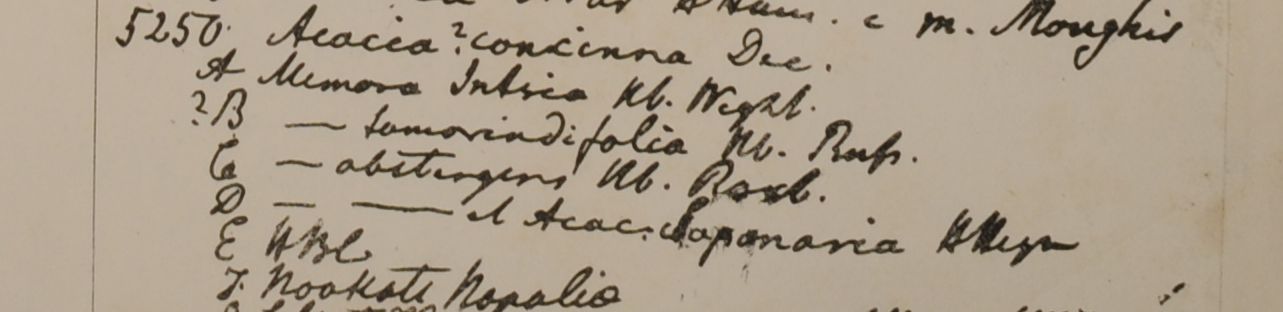 HHam. e m. Monghir
5250. Acacia? concinna Dec.
A Memora Intsia Hb. Wight.
?B — tamarindifolia Hb. Russ.
C — abstergens Hb. Roxb.
D — — et Acac. Saponaria HHeyn
E HBC
F. Nookote Nopalia